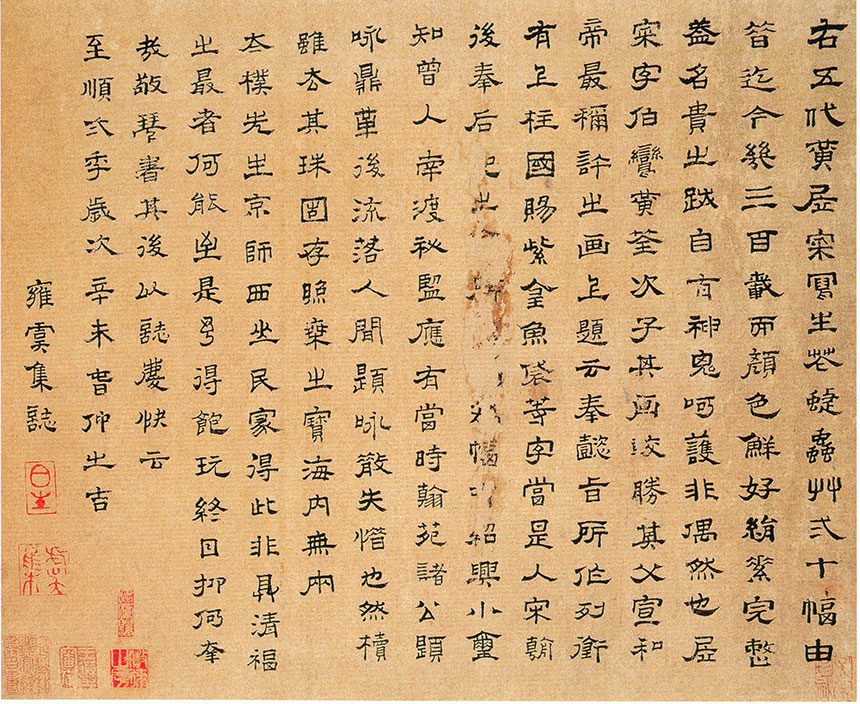 右五代黃居寀寫生花蜨蟲艸弍十幅由
昔迄今幾三百載而顏色鮮好絹素完整
蓋名貴之跡自有神鬼呵護非偶然也居
寀字伯鸞黃荃次子其画較勝其父宣和
帝最稱許之画上題云奉懿旨所作列銜
有上柱國賜紫金魚袋等字當是入宋朝
後奉后妃之 幅中紹興小璽
知曾入南渡秘監應有當時翰苑諸公題
咏鼎革後流落人間題咏散失惜也然櫝
雖去其珠固存照乘之寶海內無兩
太樸先生京師西山民家得此非具清福
之最者何能 是予得飽玩終日抑何幸
哉敬 書其後以誌慶快云
至順弍年歲次辛未春仰之吉
雍虞集誌